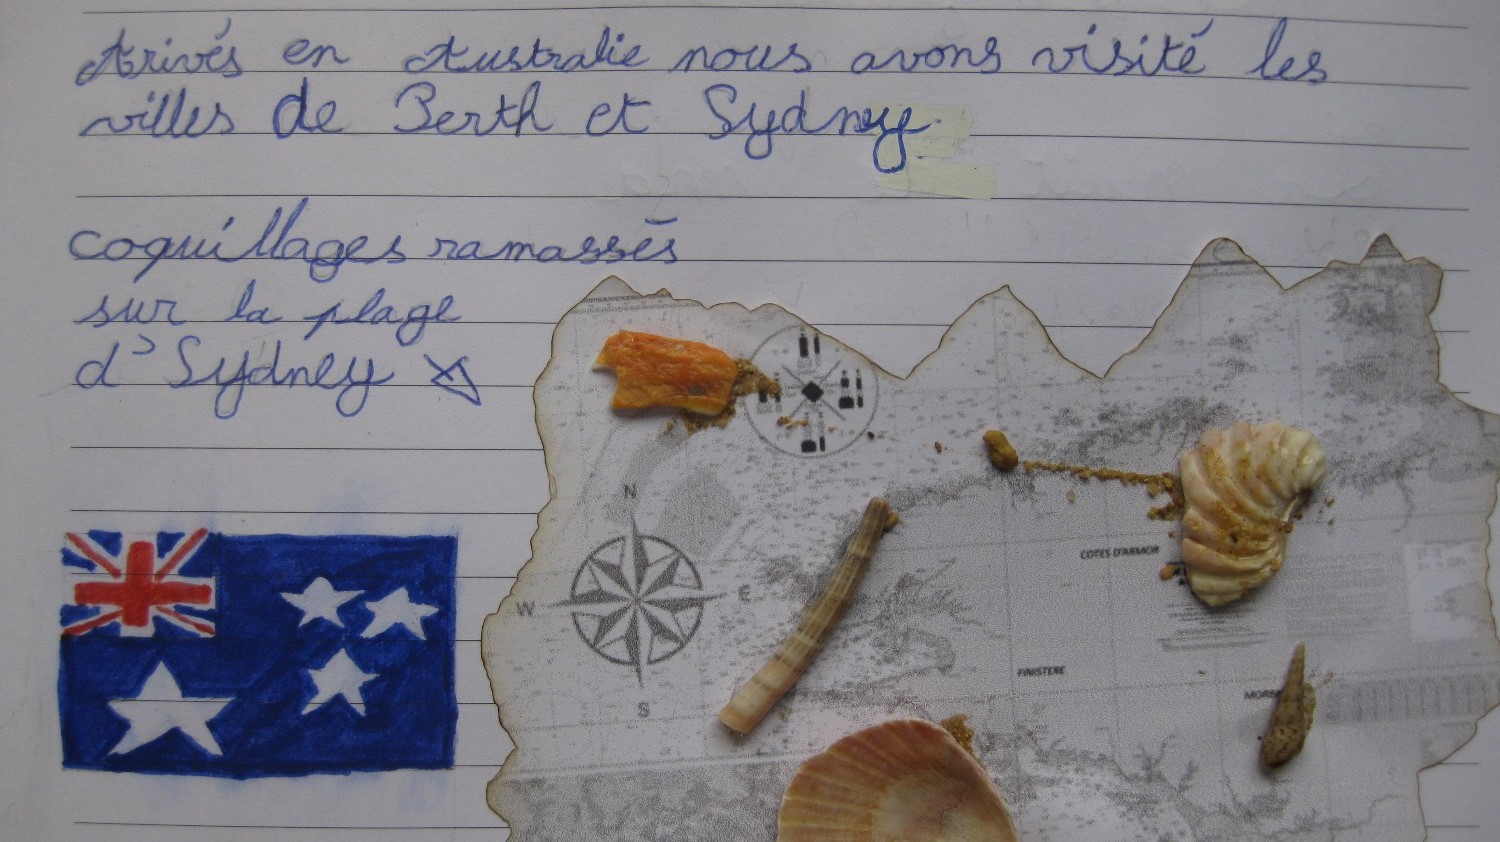 Arivés en Australie nous avons visité les
villes de Perth et Sydney.
coquillages ramassés
sur la plage
d'Sydney
N
W
E
S
COTES D'ARMOR
FINISTERE